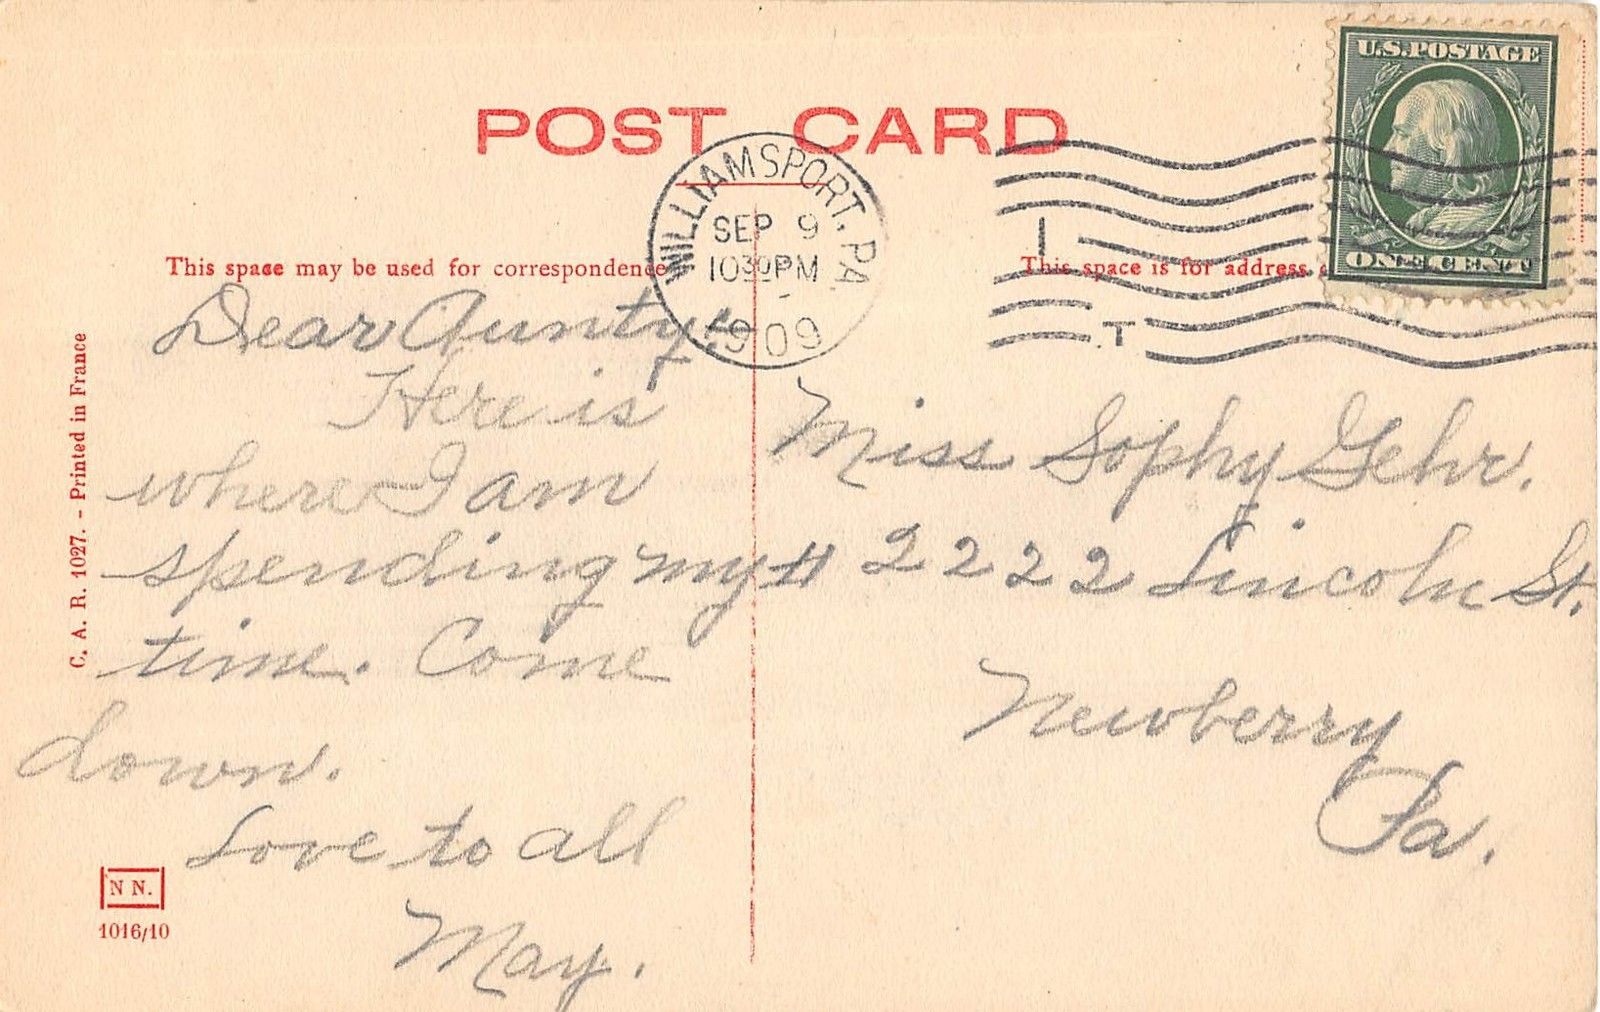 POST CARD
U.S. POSTAGE
ONE CENT
WILLIAMSPORT, PA
SEP 9
10 30 PM
1909
I
T
This space may be used for correspondence
This space is for address
Dear Aunty:
Here is
where I am
spending my
time. Come
down.
Love to all
May.
Miss Sophy Gehr.
# 2222 Lincoln St.
Newberry
Pa.
C. A. R. 1027. - Printed in France
N N.
1016/10